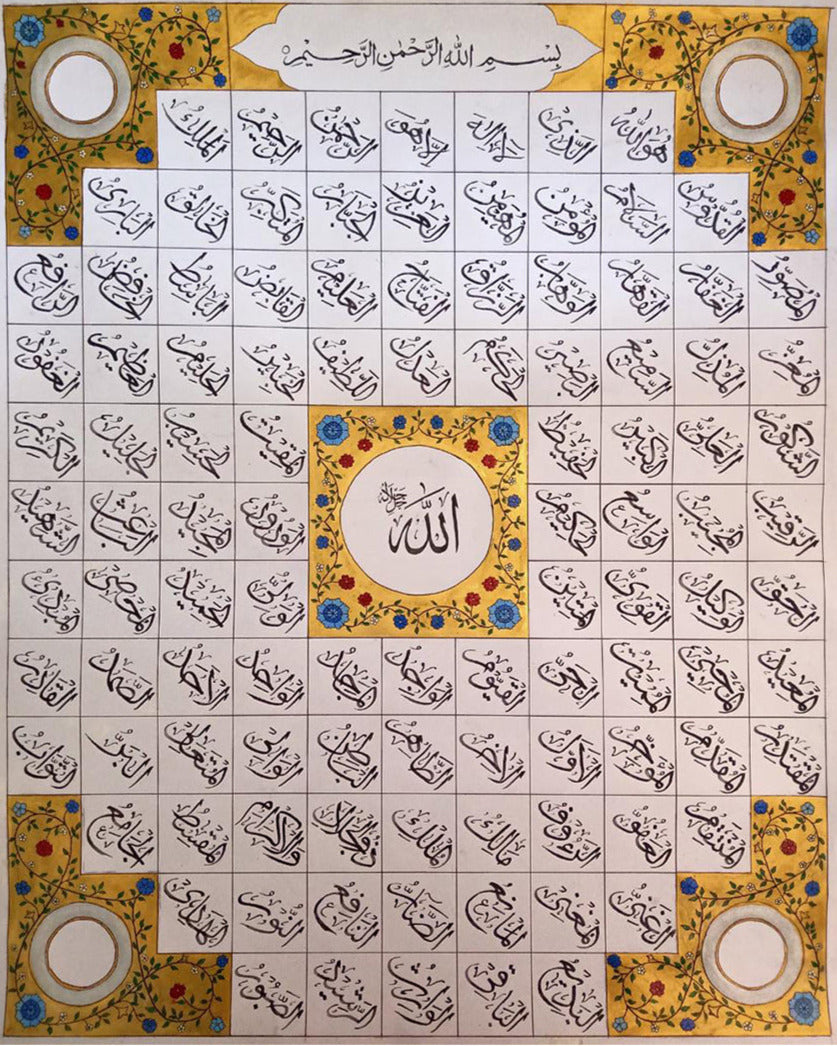 بِسْمِ اللهِ الرَّحْمٰنِ الرَّحِيْمِ
هُوَ اللهُ الَّذِيْ لَا اِلٰهَ اِلَّا هُوَ الرَّحْمٰنُ الرَّحِيْمُ الْمَلِكُ
الْقُدُّوْسُ السَّلَامُ الْمُؤْمِنُ الْمُهَيْمِنُ الْعَزِيْزُ الْجَبَّارُ الْمُتَكَبِّرُ الْخَالِقُ الْبَارِئُ
الْمُصَوِّرُ الْغَفَّارُ الْقَهَّارُ الْوَهَّابُ الرَّزَّاقُ الْفَتَّاحُ الْعَلِيْمُ الْقَابِضُ الْبَاسِطُ الْخَافِضُ الرَّافِعُ
الْمُعِزُّ الْمُذِلُّ السَّمِيْعُ الْبَصِيْرُ الْحَكَمُ الْعَدْلُ اللَّطِيْفُ الْخَبِيْرُ الْحَلِيْمُ الْعَظِيْمُ الْغَفُوْرُ
الشَّكُوْرُ الْعَلِيُّ الْكَبِيْرُ الْحَفِيْظُ الْمُقِيْتُ الْحَسِيْبُ الْجَلِيْلُ الْكَرِيْمُ
الرَّقِيْبُ الْمُجِيْبُ الْوَاسِعُ الْحَكِيْمُ الْوَدُوْدُ الْمَجِيْدُ الْبَاعِثُ الشَّهِيْدُ
اللهُ جل جلاله
الْحَقُّ الْوَكِيْلُ الْقَوِيُّ الْمَتِيْنُ الْوَلِيُّ الْحَمِيْدُ الْمُحْصِيْ الْمُبْدِئُ
الْمُعِيْدُ الْمُحْيِيْ الْمُمِيْتُ الْحَيُّ الْقَيُّوْمُ الْوَاجِدُ الْمَاجِدُ الْوَاحِدُ الْاَحَدُ الصَّمَدُ الْقَادِرُ
الْمُقْتَدِرُ الْمُقَدِّمُ الْمُؤَخِّرُ الْاَوَّلُ الْاٰخِرُ الظَّاهِرُ الْبَاطِنُ الْوَالِيْ الْمُتَعَالِيْ الْبَرُّ التَّوَّابُ
الْمُنْتَقِمُ الْعَفُوُّ الرَّءُوْفُ مَالِكُ الْمُلْكِ ذُوالْجَلَالِ وَالْاِكْرَامِ الْمُقْسِطُ الْجَامِعُ
الْغَنِيُّ الْمُغْنِيْ الْمَانِعُ الضَّارُّ النَّافِعُ النُّوْرُ الْهَادِيْ
الْبَدِيْعُ الْبَاقِيْ الْوَارِثُ الرَّشِيْدُ الصَّبُوْرُ